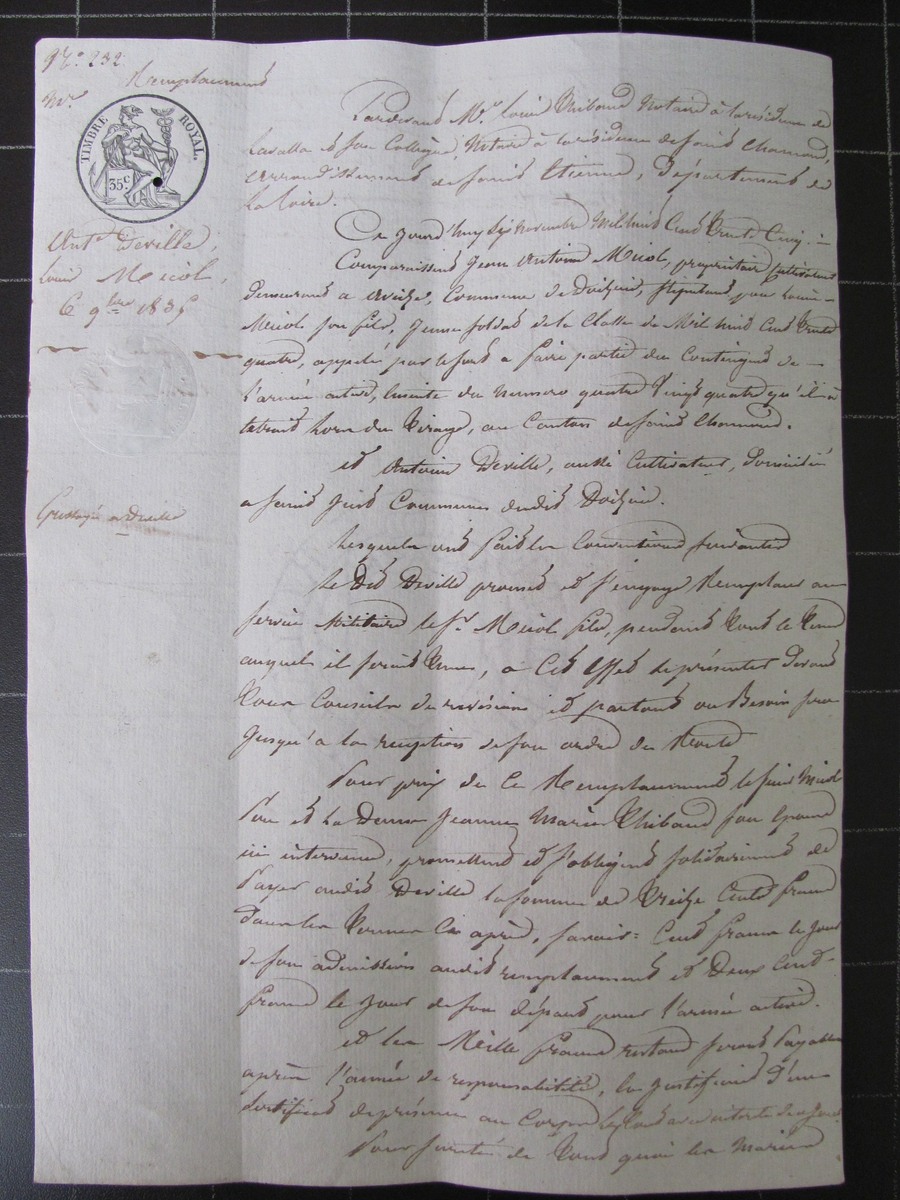 N.° 232
Remplacement
TIMBRE ROYAL.
35 c
Ant.e Deville,
Louis Miçol,
6 9bre 1835
Grossoyé a Deville
Pardevant Me. Louis Thibaud Notaire à la résidence de
Lavalla et son Collègue, Notaire à la résidence de saint Chamond,
arrondissement de saint Etienne, Département de
la Loire.
Ce jourd'huy six novembre mil huit Cent Trente Cinq
Comparaissent Jean Antoine Miçol, propriétaire cultivateur
demeurant a Commune de Doizieu, stipulant pour Louis
Miçol son fils, jeune soldat de la Classe de Mil huit Cent Trente
quatre, appelé par le sort a faire partie du Contingent de
l'armée active, ensuite du numero quatre Vingt quatre qu'il a
obtenu lors du Tirage, au Canton de saint Chamond.
et Antoine Deville, aussi Cultivateur, Domicilié
a saint Just Commune dudit Doizieu.
Lesquels ont fait les Conventions suivantes
Le Dit Deville promet et s'engage Remplacer au
service Militaire le sr. Miçol fils, pendant tout le Tems
auquel il serait Tenu, a Cet Effet se présenter Devant
tous Conseils de revision et partout ou Besoin sera
jusqu'a la reception de son ordre de Route
Pour prix de Ce Remplacement le sieur Miçol
Pere et la Dame Jeanne Marie Thibaud son Epouse
ici intervenue, promettent et s'obligent solidairement de
Payer audit Deville la somme de Treize Cents francs
dans les Termes Ci après, savoir: Cent francs le jour
de son admission audit remplacement et Deux Cent
francs le jour de son départ pour l'armée active.
et les Mille francs restant seront Payables
après l'année de responsabilité, en justifiant d'un
Certificat de présence au Corps
Pour sureté de Tout quoi les Mariés